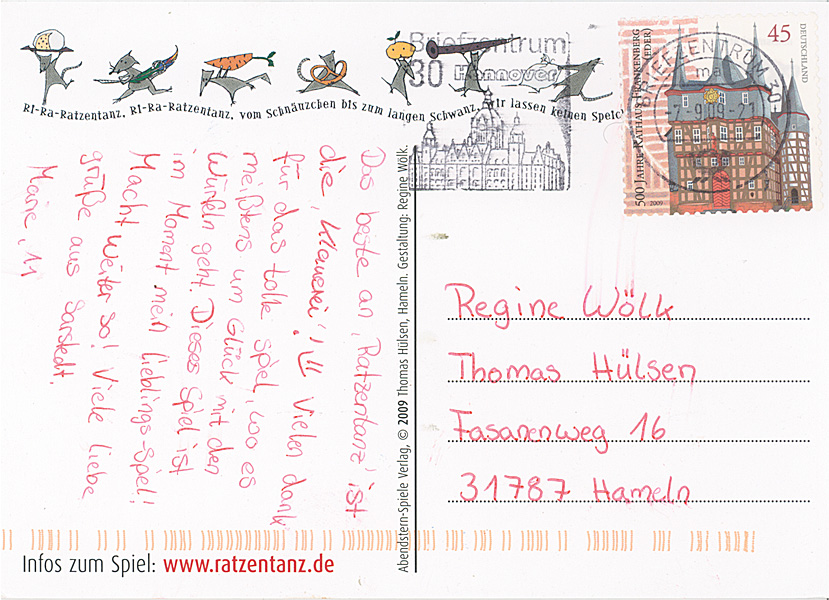 RI-Ra-Ratzentanz, RI-Ra-Ratzentanz, vom Schnäuzchen bis zum langen Schwanz, wir lassen keinen Speck!
Das beste an 'Ratzentanz' ist
die, Klauerei'! Vielen dank
für das tolle spiel, wo es
meißtens um Glück mit den
Würfeln geht. Dieses Spiel ist
im Moment mein lieblings-Spiel!
Macht weiter so! Viele liebe
grüße aus Sarstedt.
Marie, 11
Infos zum Spiel: www.ratzentanz.de
Abendstern-Spiele Verlag, © 2009 Thomas Hülsen, Hameln. Gestaltung: Regine Wölk.
Briefzentrum
30 Hannover
BRIEFZENTRUM 30
ma
-7.-9.09-21
45
DEUTSCHLAND
500 JAHRE RATHAUS FRANKENBERG
(EDER)
2009
Regine Wölk
Thomas Hülsen
Fasanenweg 16
31787 Hameln